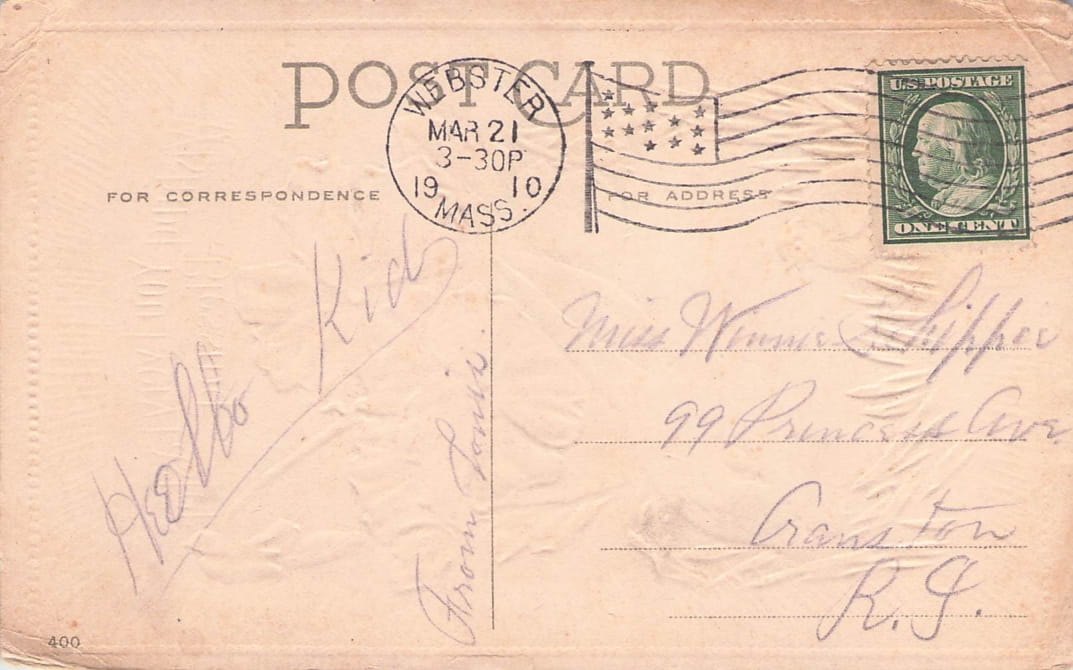 POST CARD
WEBSTER
MAR 21
3-30P
19 10
MASS.
U.S. POSTAGE
ONE CENT
FOR CORRESPONDENCE
FOR ADDRESS
Hello Kid
From Louis.
Miss Winnie Shippee
99 Princess Ave
Cranston
R.I.
400